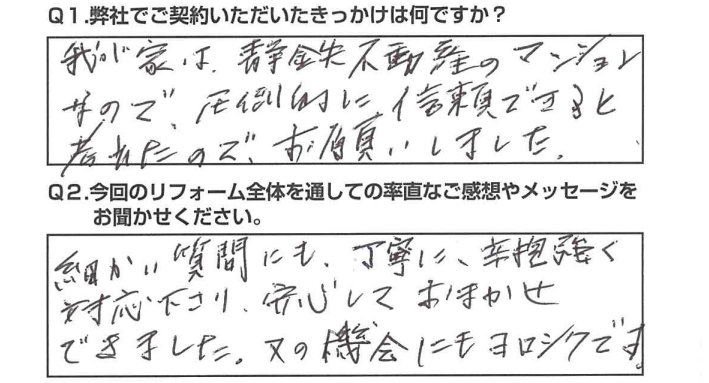 Q1.弊社でご契約いただいたきっかけは何ですか?
我が家は、静鉄不動産のマンション
なので、圧倒的に信頼できると
考えたので、お願いしました。
Q2.今回のリフォーム全体を通しての率直なご感想やメッセージを
お聞かせください。
細かい質問にも、丁寧に、辛抱強く
対応下さり、安心しておまかせ
できました。又の機会にもヨロシクです。